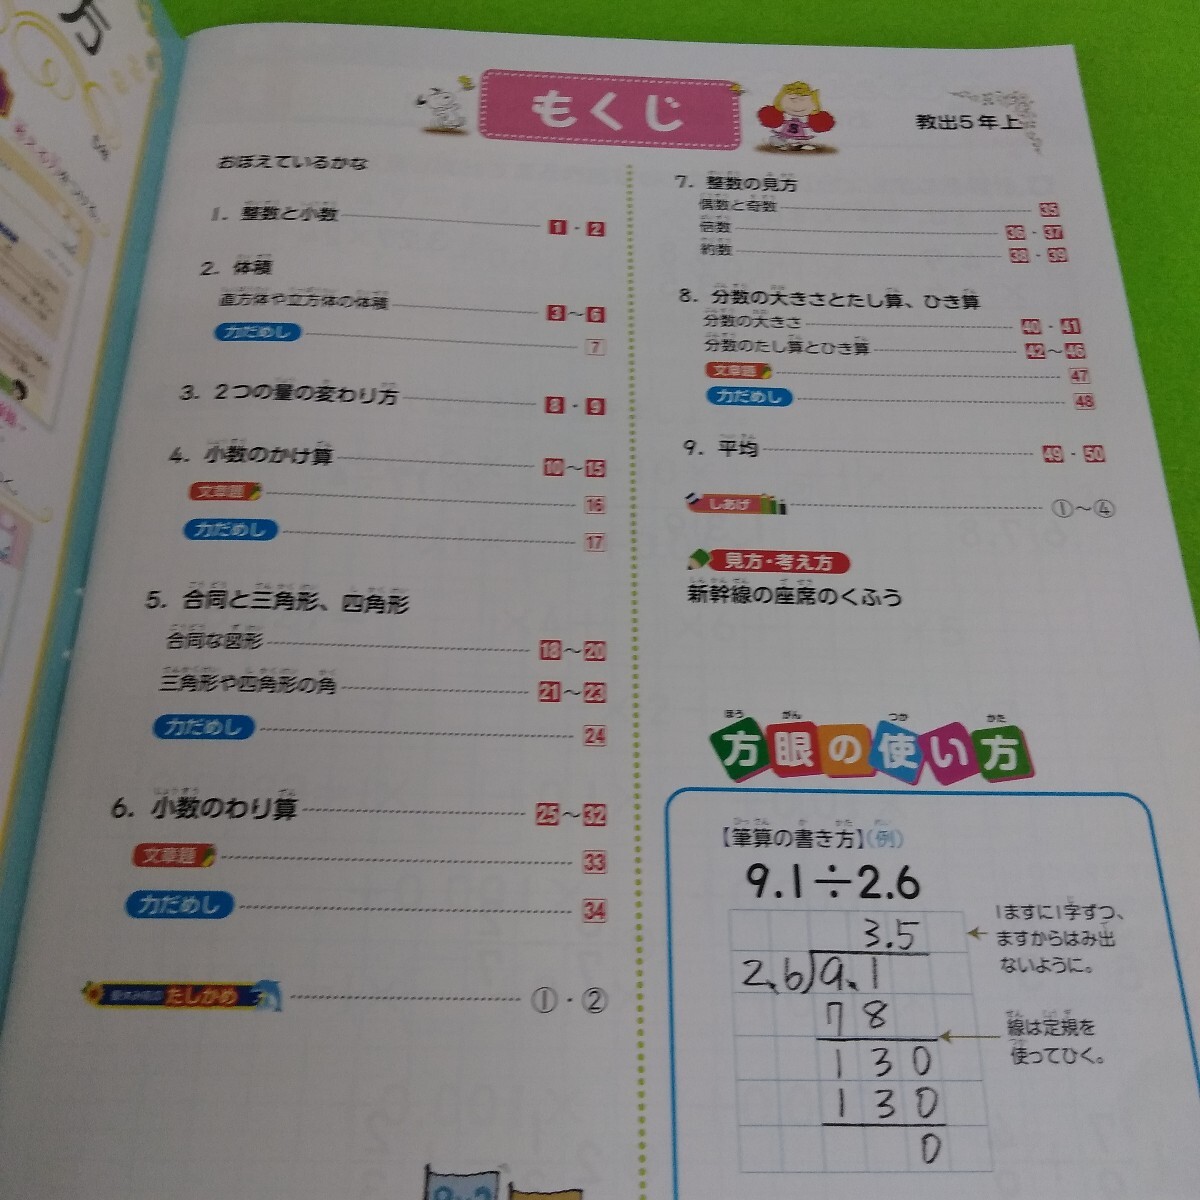 もくじ
教出5年上
おぼえているかな
1. 整数と小数 1・2
2. 体積
直方体や立方体の体積 3～6
力だめし 7
3. 2つの量の変わり方 8・9
4. 小数のかけ算 10～15
文章題 16
力だめし 17
5. 合同と三角形、四角形
合同な図形 18～20
三角形や四角形の角 21～23
力だめし 24
6. 小数のわり算 25～32
文章題 33
力だめし 34
たしかめ ①・②
7. 整数の見方
偶数と奇数 35
倍数 36・37
約数 38・39
8. 分数の大きさとたし算、ひき算
分数の大きさ 40・41
分数のたし算とひき算 42～46
文章題 47
力だめし 48
9. 平均 49・50
しあげ ①～④
見方・考え方
新幹線の座席のくふう
方眼の使い方
【筆算の書き方】(例)
9.1÷2.6
3.5
2.6)9.1
78
130
130
0
1ますに1字ずつ、
ますからはみ出
ないように。
線は定規を
使ってひく。